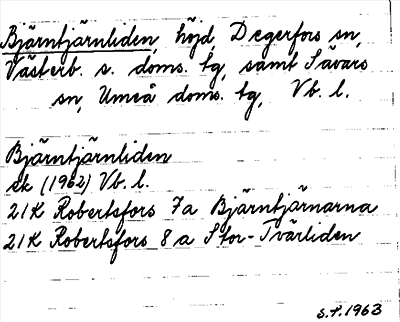 Bjärntjärnliden, höjd, Degerfors sn,
Västerb. s. doms. tg, samt Sävars
sn, Umeå doms. tg, Vb. l.
Bjärntjärnliden
ek (1962) Vb. l.
21K Robertsfors 7a Bjärntjärnarna
21K Robertsfors 8a Stor-Tvärliden
S.S. 1963